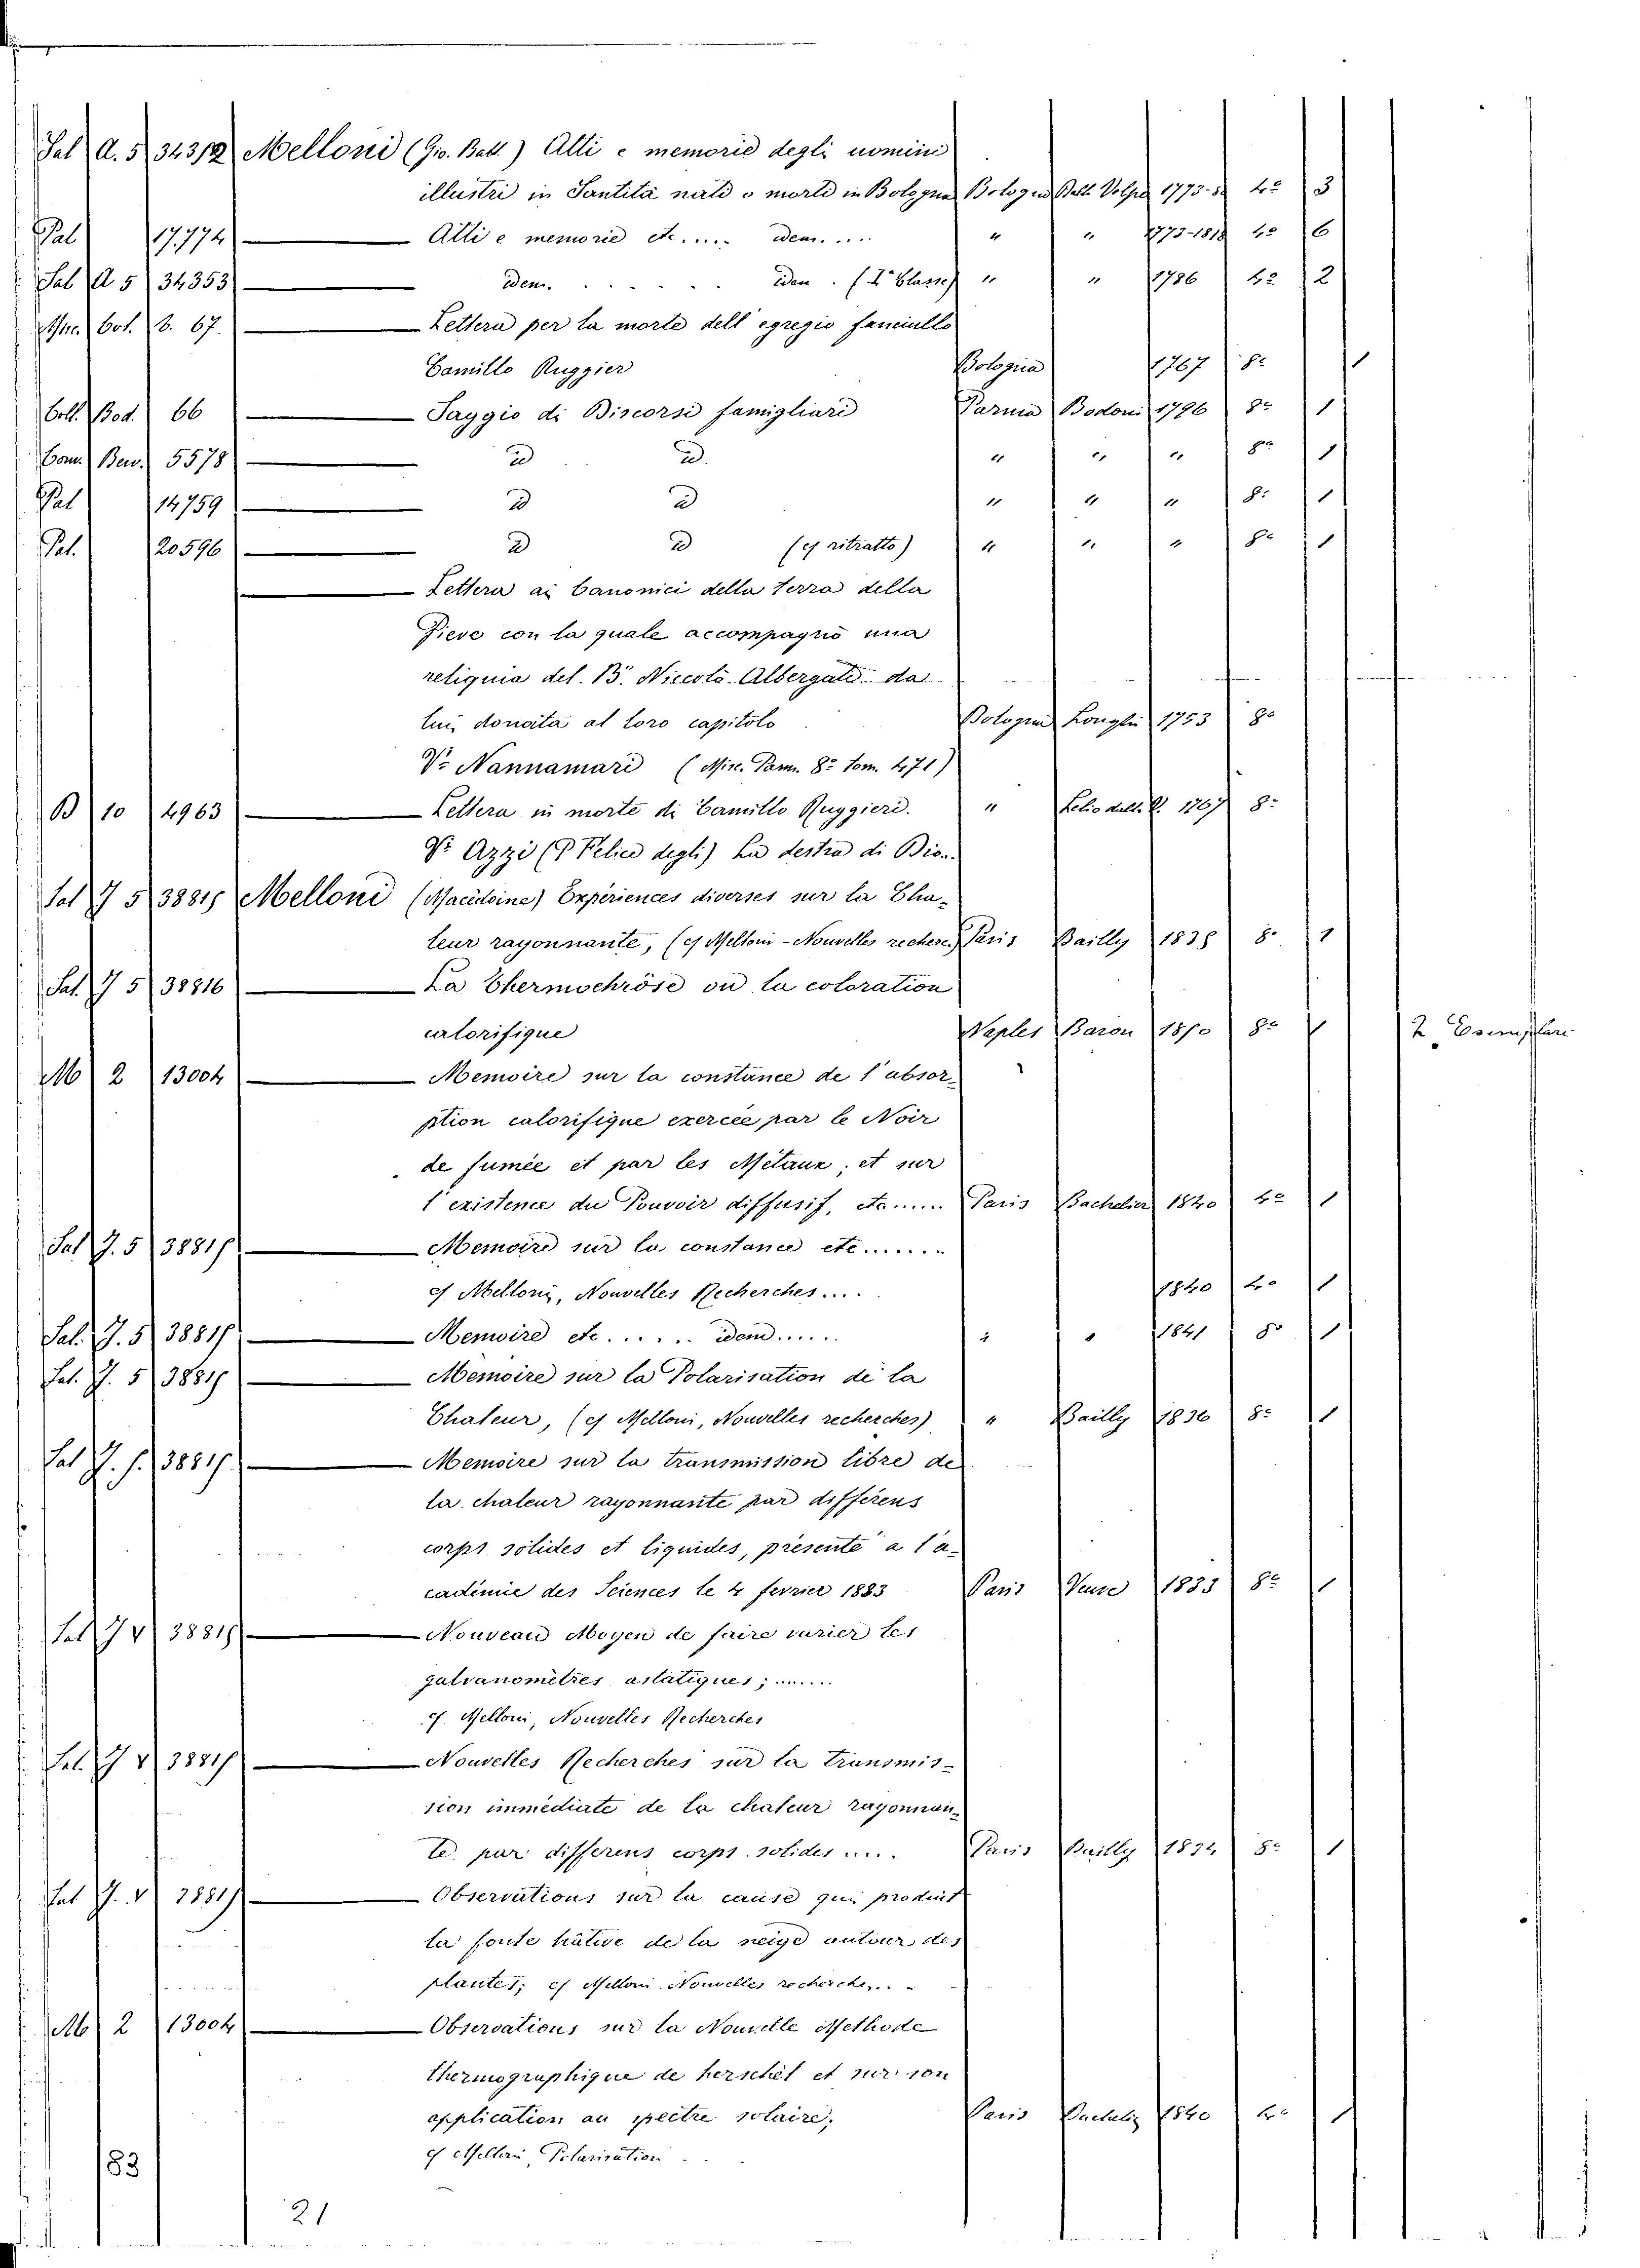 Sal A. 5 34312 Melloni (Gio. Batt.) Atti e memorie degli uomini
illustri in Santità nati o morti in Bologna Bologna Dalla Volpe 1773- 4º 3
Pal 17.774 Atti e memorie etc..... idem..... " " 1773-1818 4º 6
Sal A 5 34353 idem. . . . . . idem. (Iª Classe) " " 1786 4º 2
Misc. Bol. B. 67. Lettera per la morte dell' egregio fanciullo
Camillo Ruggieri Bologna 1767 8º 1
Coll. Bod. 66 Saggio di Discorsi famigliari Parma Bodoni 1796 8º 1
Com. Bew. 5578 id id. " " " 8º 1
Pal 14759 id id " " " 8º 1
Pal. 20596 id id (cf ritratto) " " " 8º 1
Lettera ai Canonici della terra della
Pieve con la quale accompagnò una
reliquia del B. Niccolò Albergati da
lui donata al loro capitolo Bologna Longhi 1753 8º
Vº Nannamari (Misc. Parm. 8º tom. 471)
B 10 4963 Lettera in morte di Camillo Ruggieri. " Lelio dall. V. 1767 8º
Vº Azzi (P Felice degli) La destra di Dio..
Sal J 5 38815 Melloni (Macédoine) Expériences diverses sur la Cha-
leur rayonnante, (cf Melloni - Nouvelles recher.) Paris Bailly 1835 8º 1
Sal. J 5 38816 La Thermochröse ou la coloration
calorifique Naples Baron 1850 8º 2 Esemplari
M 2 13004 Memoire sur la constance de l'absor-
ption calorifique exercée par le Noir
de fumée et par les Métaux, et sur
l'existence du Pouvoir diffusif, etc...... Paris Bachelier 1840 4º 1
Sal J. 5 38815 Memoire sur la constance etc.......
cf Melloni, Nouvelles Recherches.... 1840 4º 1
Sal. J. 5 38815 Memoire etc...... idem...... " " 1841 8º 1
Sal. J. 5 38815 Memoire sur la Polarisation de la
Chaleur, (cf Melloni, Nouvelles recherches) " Bailly 1836 8º 1
Sal J. 5. 38815 Memoire sur la transmission libre de
la chaleur rayonnante par différens
corps solides et liquides, présenté a l'a-
cadémie des Sciences le 4 fevrier 1883 Paris Veuve 1833 8º 1
Sal J V 38815 Nouveau Moyen de faire varier les
galvanomètres astatiques; ......
cf. Melloni, Nouvelles Recherches
Sal. J V 38815 Nouvelles Recherches sur la transmis-
sion immediate de la chaleur rayonnan-
te par differens corps solides ..... Paris Bailly 1834 8º 1
Sal J. V 38815 Observations sur la cause qui produit
la fonte hâtive de la neige autour des
plantes; cf Melloni Nouvelles recherches...
M 2 13004 Observations sur la Nouvelle Methode
thermographique de herschel et sur son
application au spectre solaire, Paris 1840 4º 1
cf Melloni, Polarisation
183
21